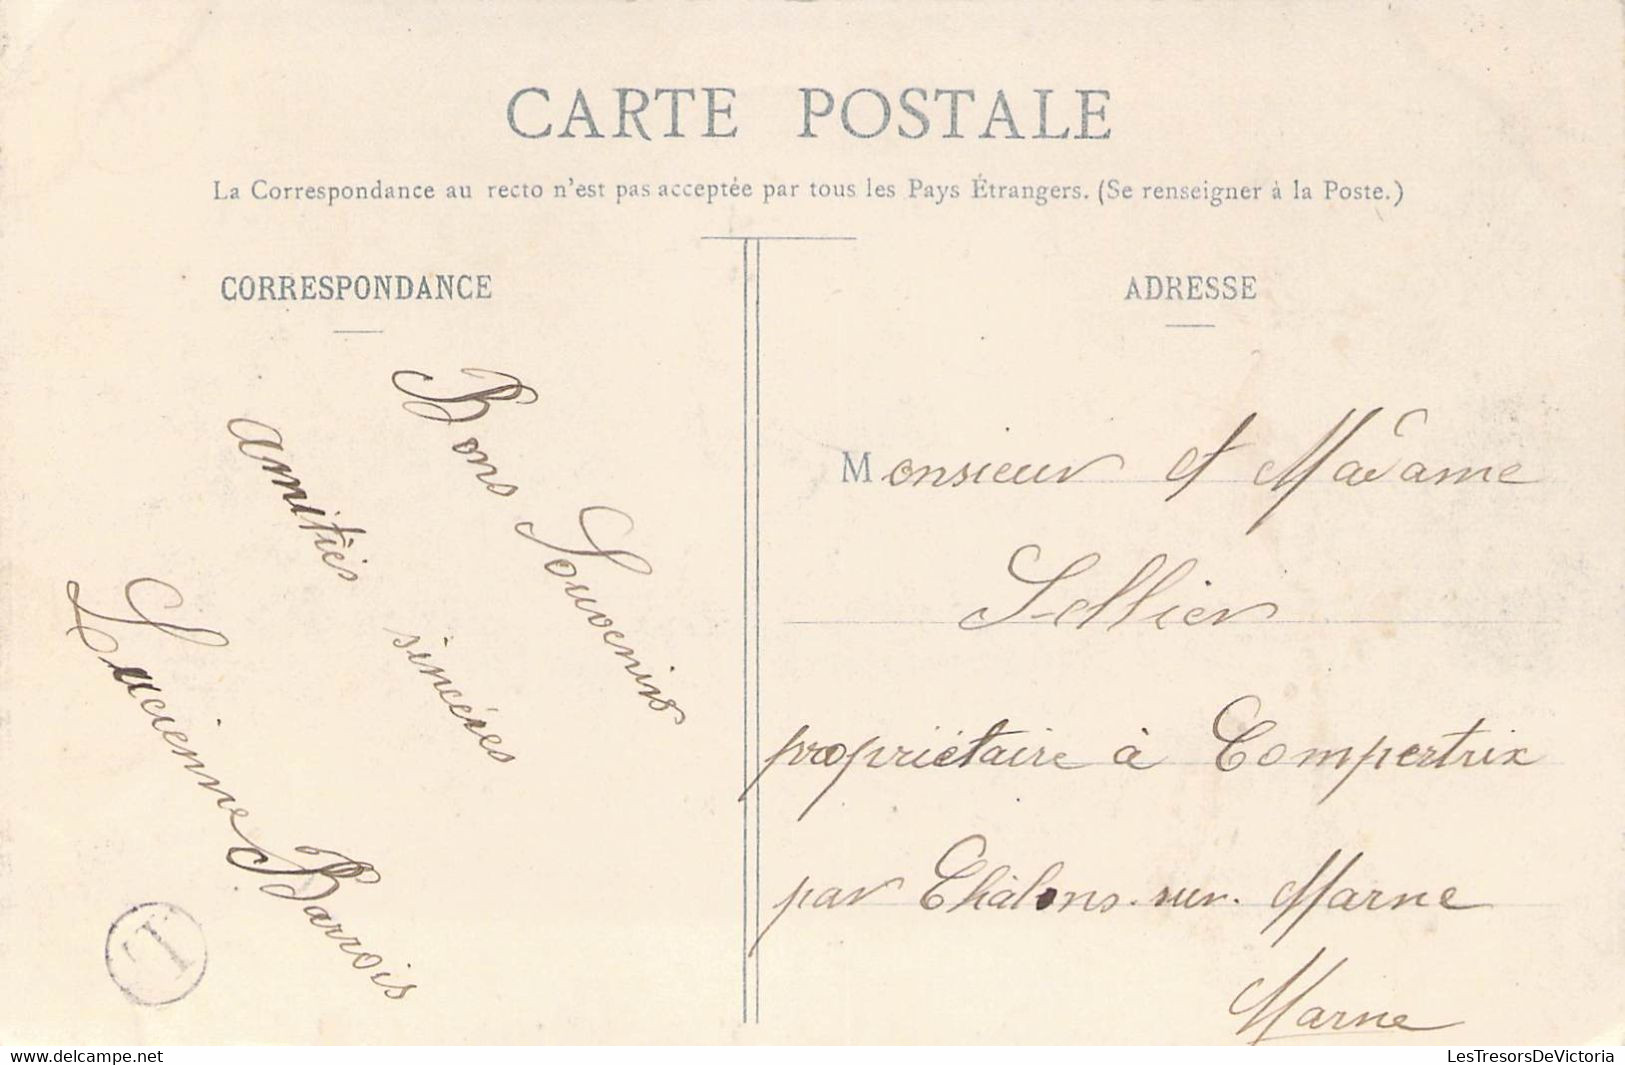 CARTE POSTALE
La Correspondance au recto n'est pas acceptée par tous les Pays Étrangers. (Se renseigner à la Poste.)
CORRESPONDANCE
Bons Souvenirs
amitiés sincères
Lucienne Barrois
T
ADRESSE
Monsieur et Madame
Sellier
propriétaire à Compertrix
par Châlons-sur-Marne
Marne
www.delcampe.net
LesTresorsDeVictoria